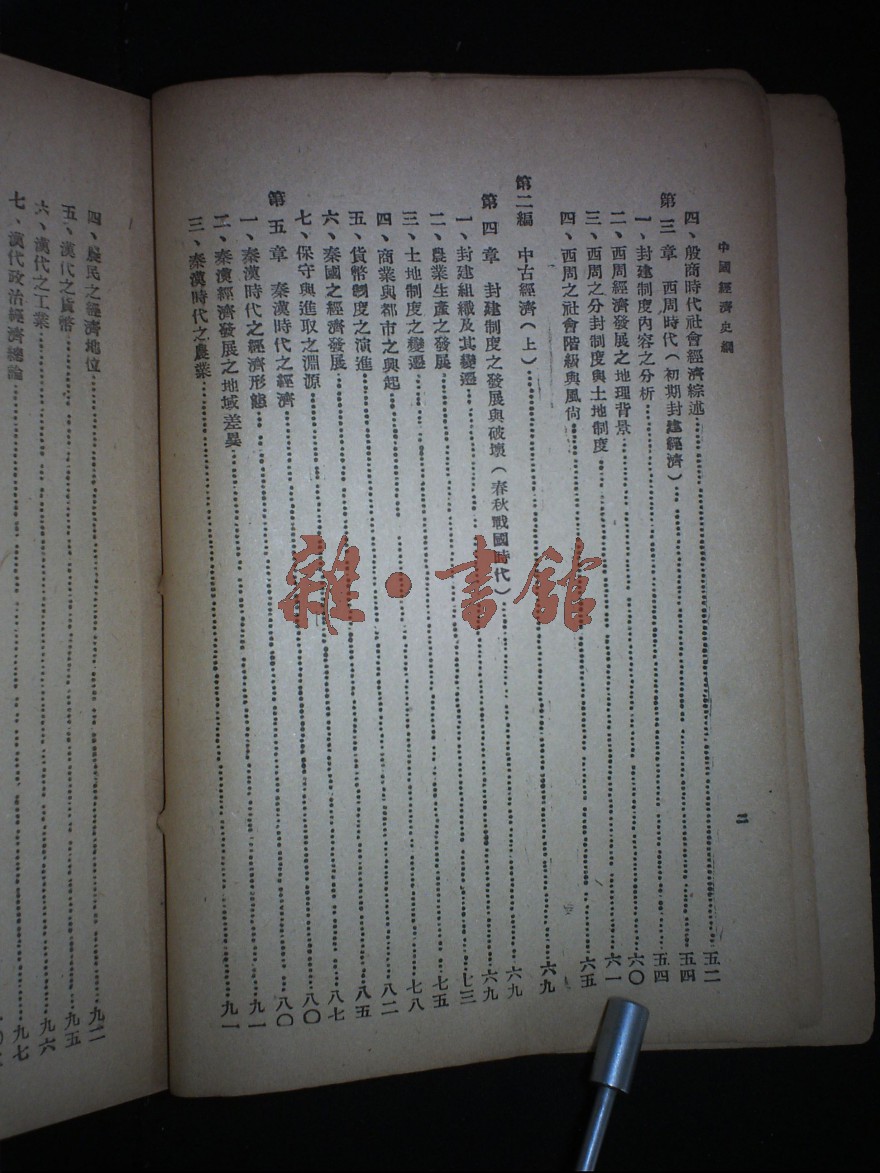 中國經濟史綱
二
四、般商時代社會經濟綜述……五二
第三章 西周時代(初期封建經濟)……五四
一、封建制度內容之分析……五四
二、西周經濟發展之地理背景……六〇
三、西周之分封制度與土地制度……六一
四、西周之社會階級與風尚……六五
第二編 中古經濟(上)……六九
第四章 封建制度之發展與破壞(春秋戰國時代)……六九
一、封建組織及其變遷……六九
二、農業生產之發展……七三
三、土地制度之變遷……七五
四、商業與都市之興起……七八
五、貨幣制度之演進……八二
六、秦國之經濟發展……八五
七、保守與進取之淵源……八七
第五章 秦漢時代之經濟……八〇
一、秦漢時代之經濟形態……八〇
二、秦漢經濟發展之地域差異……九一
三、秦漢時代之農業……九一
四、農民之經濟地位……九二
五、漢代之貨幣……九五
六、漢代之工業……九六
七、漢代政治經濟總論……九七
雜·書館